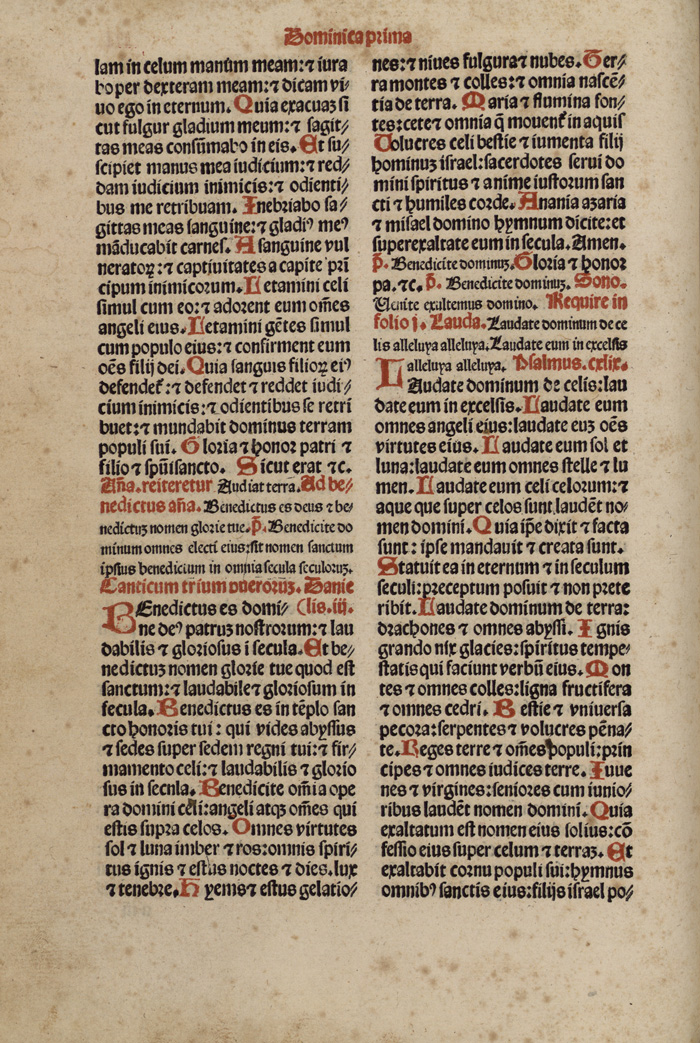 Dominica prima
lam in celum manūm meam:⁊ iura
bo per dexteram meam:⁊ dicam vi⸗
uo ego in eternum. Quia exacuaʒ si
cut fulgur gladium meum:⁊ sagit⸗
tas meas consūmabo in eis. Et su⸗
scipiet manus mea iudicium:⁊ red⸗
dam iudicium inimicis:⁊ odienti⸗
bus me retribuam. Inebriabo sa⸗
gittas meas sanguine:⁊ gladiꝰ meꝰ
māducabit carnes. A sanguine vul
neratoꝝ:⁊ captiuitates a capite pri
cipum inimicorum. Letamini celi
simul cum eo:⁊ adorent eum om̄es
angeli eius. Letamini gētes simul
cum populo eius:⁊ confirment eum
oēs filij dei. Quia sanguis filioꝝ eiꝰ
defendet̄:⁊ defendet ⁊ reddet iudi⸗
cium inimicis:⁊ odientibus se retri
buet:⁊ mundabit dominus terram
populi sui. Gloria ⁊ honor patri ⁊
filio ⁊ spūisancto. Sicut erat ⁊c.
Aña. reiteretur Audiat terra. Ad be⸗
nedictus aña. Benedictus es deus ⁊ be⸗
nedictuʒ nomen glorie tue. p̄. Benedicite do
minum omnes electi eius:sit nomen sanctum
ipsius benedicium in omnia secula seculoruʒ.
Canticum trium pueroruʒ. Danie
BEnedictus es domi⸗ (lis. iii.
ne deꝰ patruʒ nostrorum:⁊ lau
dabilis ⁊ gloriosus i secula. Et be⸗
nedictuʒ nomen glorie tue quod est
sanctum:⁊ laudabile ⁊ gloriosum in
secula. Benedictus es in tēplo san
cto honoris tui: qui vides abyssus
⁊ sedes super sedem regni tui:⁊ fir⸗
mamento celi:⁊ laudabilis ⁊ glorio
sus in secnla. Benedicite om̄ia ope
ra domini celi:angeli atqʒ om̄es qui
estis supra celos. Omnes virtutes
sol ⁊ luna imber ⁊ ros:omnis spiri⸗
tus ignis ⁊ estus noctes ⁊ dies. lux
⁊ tenebre. Hyems ⁊ estus gelatio⸗
nes:⁊ niues fulgura ⁊ nubes. Ter⸗
ra montes ⁊ colles:⁊ omnia nascē⸗
tia de terra. Maria ⁊ flumina fon⸗
tes:cete ⁊ omnia q̄ mouent̄ in aquis
Volucres celi bestie ⁊ iumenta filij
hominuʒ israel:sacerdotes serui do
mini spiritus ⁊ anime iustorum san
cti ⁊ humiles corde. Anania azaria
⁊ misael domino hymnum dicite:et
superexaltate eum in secula. Amen.
p̄. Benedicite dominuʒ. Gloria ⁊ honor
pa. ⁊c. p̄. Benedicite dominuʒ. Sono.
Uenite exultemus domino. Require in
folio j. Lauda. Laudate dominum de ce
lis alleluya alleluya. Laudate eum in excelsis
alleluya alleluya. Psalmus. cxlix.
LAudate dominum de celis:lau
date eum in excelsis. Laudate eum
omnes angeli eius:laudate euʒ oēs
virtutes eius. Laudate eum sol et
luna:laudate eum omnes stelle ⁊ lu
men. Laudate eum celi celorum:⁊
aque que super celos sunt laudēt no⸗
men domini. Quia ip̄e dixit ⁊ facta
sunt: ipse mandauit ⁊ creata sunt.
Statuit ea in eternum ⁊ in seculum
seculi:preceptum posuit ⁊ non prete
ribit. Laudate dominum de terra:
drachones ⁊ omnes abyssi. Ignis
grando nix glacies:spiritus tempe⸗
statis qui faciunt verbū eius. Mon
tes ⁊ omnes colles:ligna fructifera
⁊ omnes cedri. Bestie ⁊ vniuersa
pecora:serpentes ⁊ volucres pēna⸗
te. Reges terre ⁊ om̄es populi:prin
cipes ⁊ omnes iudices terre. Iuue
nes ⁊ virgines:seniores cum iunio⸗
ribus laudēt nomen domini. Quia
exaltatum est nomen eius solius:cō
fessio eius super celum ⁊ terraʒ. Et
exaltabit cornu populi sui:hymnus
omnibꝰ sanctis eius:filijs israel po⸗